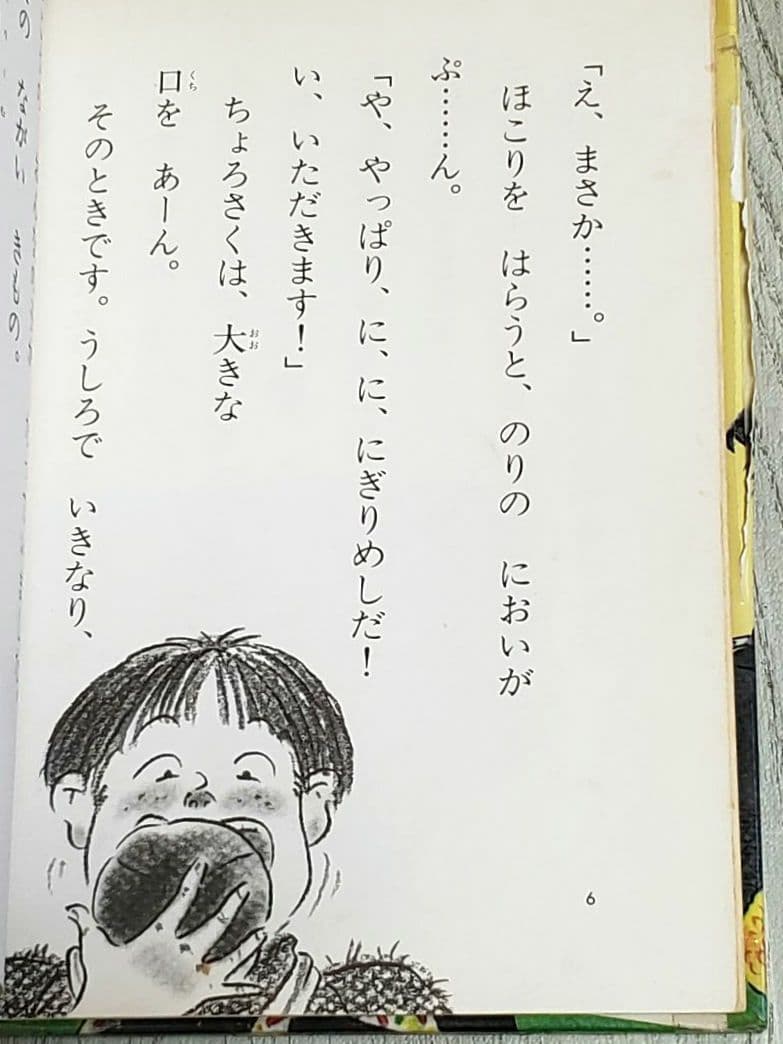 「え、まさか……。」
ほこりを　はらうと、のりの　においが
ぷ……ん。
「や、やっぱり、に、に、にぎりめしだ！
い、いただきます！」
ちょろさくは、大きな
口を　あーん。
そのときです。うしろで　いきなり、
6
ながい　きもの。